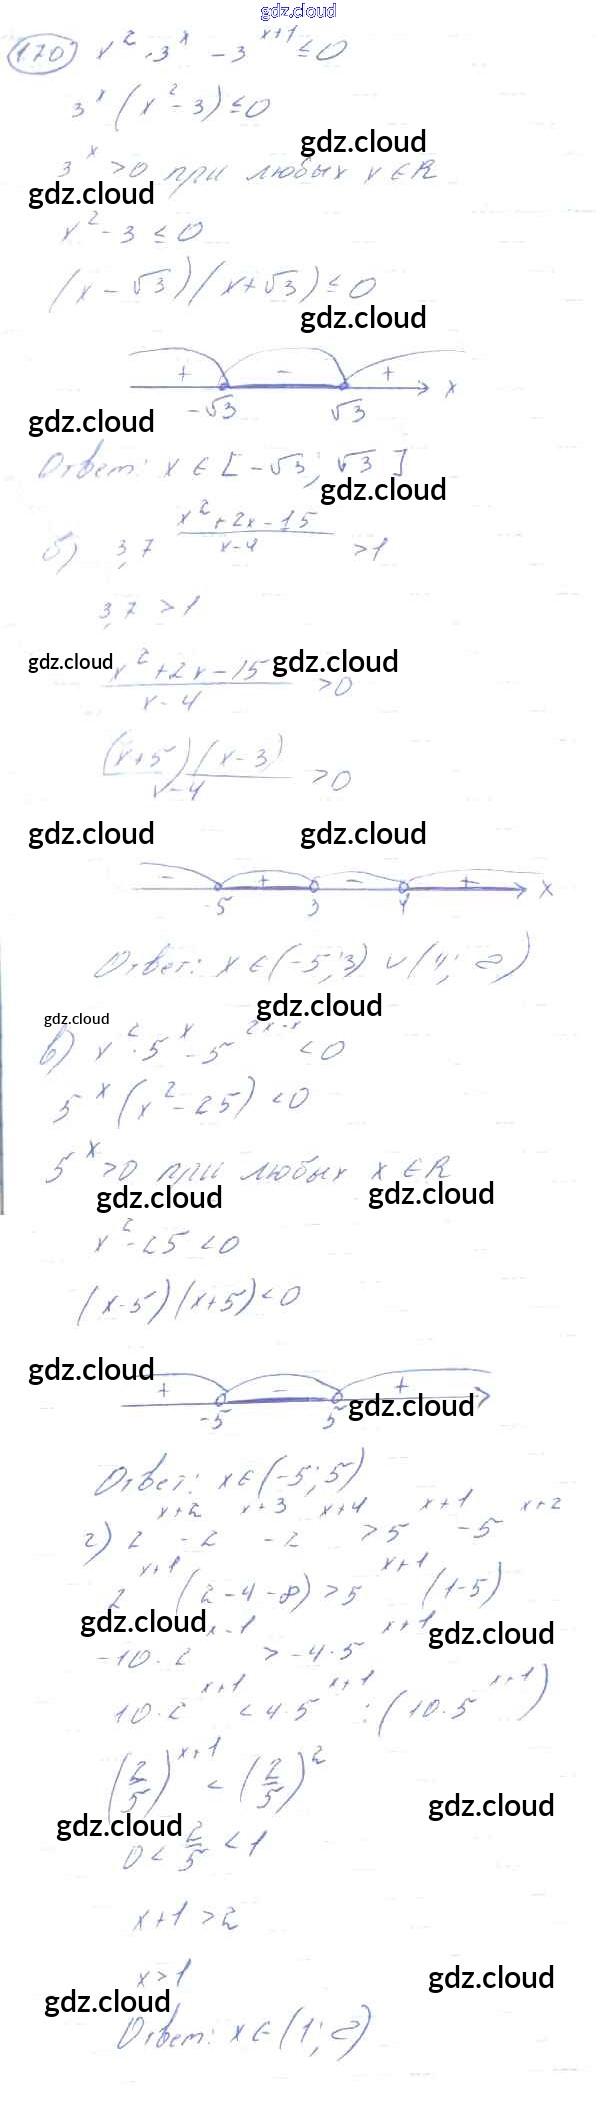 gdz.cloud
170) x² · 3ˣ - 3ˣ⁺¹ ≤ 0
3ˣ (x² - 3) ≤ 0
gdz.cloud
3ˣ > 0 при любых x ∈ R
gdz.cloud
x² - 3 ≤ 0
(x - √3)(x + √3) ≤ 0
gdz.cloud
+ - +
-√3 √3 x
gdz.cloud
Ответ: x ∈ [-√3; √3]
gdz.cloud
б) 3,7^((x² + 2x - 15)/(x - 4)) > 1
3,7 > 1
gdz.cloud gdz.cloud
(x² + 2x - 15)/(x - 4) > 0
(x + 5)(x - 3)/(x - 4) > 0
gdz.cloud gdz.cloud
- + - +
-5 3 4 x
Ответ: x ∈ (-5; 3) ∪ (4; ∞)
gdz.cloud
gdz.cloud
в) x² · 5ˣ - 5 < 0
5ˣ (x² - 25) < 0
5ˣ > 0 при любых x ∈ R
gdz.cloud gdz.cloud
x² - 25 < 0
(x - 5)(x + 5) < 0
gdz.cloud
+ - +
-5 5
gdz.cloud
Ответ: x ∈ (-5; 5)
г) 2ˣ⁺² - 2ˣ⁺³ - 2ˣ⁺⁴ > 5ˣ⁺¹ - 5ˣ⁺²
2ˣ⁺¹ (2 - 4 - 8) > 5ˣ⁺¹ (1 - 5)
gdz.cloud gdz.cloud
-10 · 2ˣ⁻¹ > -4 · 5ˣ⁺¹
10 · 2ˣ⁺¹ < 4 · 5ˣ⁺¹ : (10 · 5ˣ⁺¹)
(2/5)ˣ⁺¹ < (2/5)²
gdz.cloud gdz.cloud
0 < 2/5 < 1
x + 1 > 2
x > 1
gdz.cloud
gdz.cloud
Ответ: x ∈ (1; ∞)